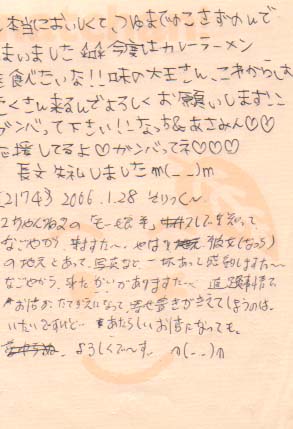 本当においしくて、つゆまでのこさずのんで
まいました 今度はカレーラーメン
を食べたいな!!味の大王さん、これからもお
たくさん来るんでよろしくお願いします!!
ガンバって下さい!!なっち&あさみん♡♡
応援してるよ♡ガンバってネ♡♡♡
長文失礼しましたm(__)m
[2174] 2006.1.28 そりっく~
2ちゃんねるの「モー娘。羊」スレを知って
なごやから、来ました~。やはり彼女(なっち)
の地元とあって、写真など一杯あって感動しました~
なごやから、来たかいがありました~。道路事情で
お店がたて替えになって、寄せ書きがきえてしまうのは、
いたいですけど… あたらしいお店になっても、
よろしくで~す。 m(__)m